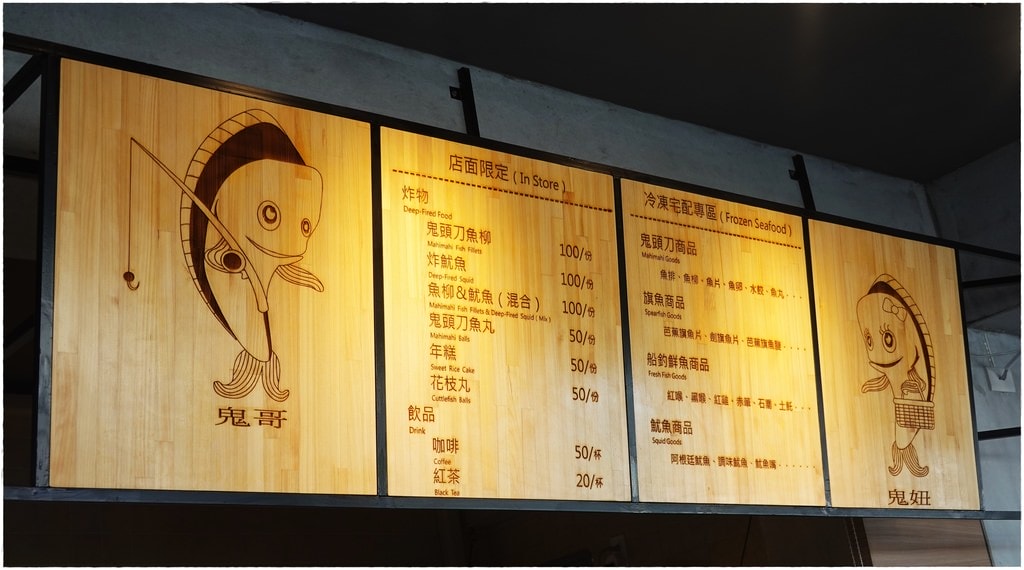 鬼哥
店面限定（In Store）
炸物
Deep-Fired Food
鬼頭刀魚柳 100/份
Mahimahi Fish Fillets
炸魷魚 100/份
Deep-Fired Squid
魚柳&魷魚（混合） 100/份
Mahimahi Fish Fillets & Deep-Fired Squid ( Mix )
鬼頭刀魚丸 50/份
Mahimahi Balls
年糕 50/份
Sweet Rice Cake
花枝丸 50/份
Cuttlefish Balls
飲品
Drink
咖啡 50/杯
Coffee
紅茶 20/杯
Black Tea
冷凍宅配專區（Frozen Seafood）
鬼頭刀商品
Mahimahi Goods
魚排、魚柳、魚片、魚卵、水餃、魚丸・・・
旗魚商品
Spearfish Goods
芭蕉旗魚片、劍旗魚片、芭蕉旗魚鬆・・・・
船釣鮮魚商品
Fresh Fish Goods
紅喉、黑喉、紅雞、赤鯮、石狗、土魠・・・
魷魚商品
Squid Goods
阿根廷魷魚、調味魷魚、魷魚嘴・・・・・
鬼妞